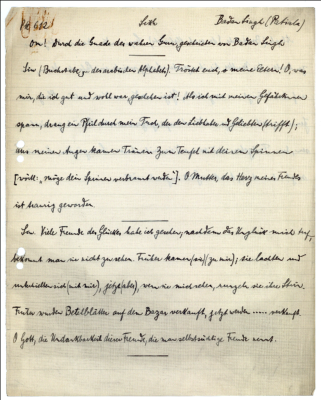 PK 662 Sikh Badan Singh (Patiala)
Om! Durch die Gnade des wahren Guru, geschrieben von Badan Singh
Sin (Buchstabe, des arabischen Alphabets). Tröstet euch, o meine Eltern! O, was
mir, die ich gut und wohl war, geschehen ist! Als ich mit meinen Gefährtinnen
spann, drang ein Pfeil durch mein Tuch, der den Liebhaber und Geliebten (trifft);
aus meinen Augen kamen Tränen. Zum Teufel mit diesem Spinnen
[wörtl: "möge dein Spinnen verbrannt werden"]. O Mutter, das Herz meines Freundes
ist traurig geworden
Sin. Viele Freunde des Glückes habe ich gesehen; nachdem das Unglück mich traf,
bekommt man sie nicht zu sehen. Früher kamen (sie) (zu mir); sie lachten und
unterhielten sich (mit mir), jetzt (aber), wenn sie mich sehen, runzeln sie ihre Stirn.
Früher wurden Betelblätter auf dem Bazar verkauft, jetzt werden ...... verkauft.
O Gott, die Undankbarkeit dieser Freunde, die man selbstsüchtige Freunde nennt.